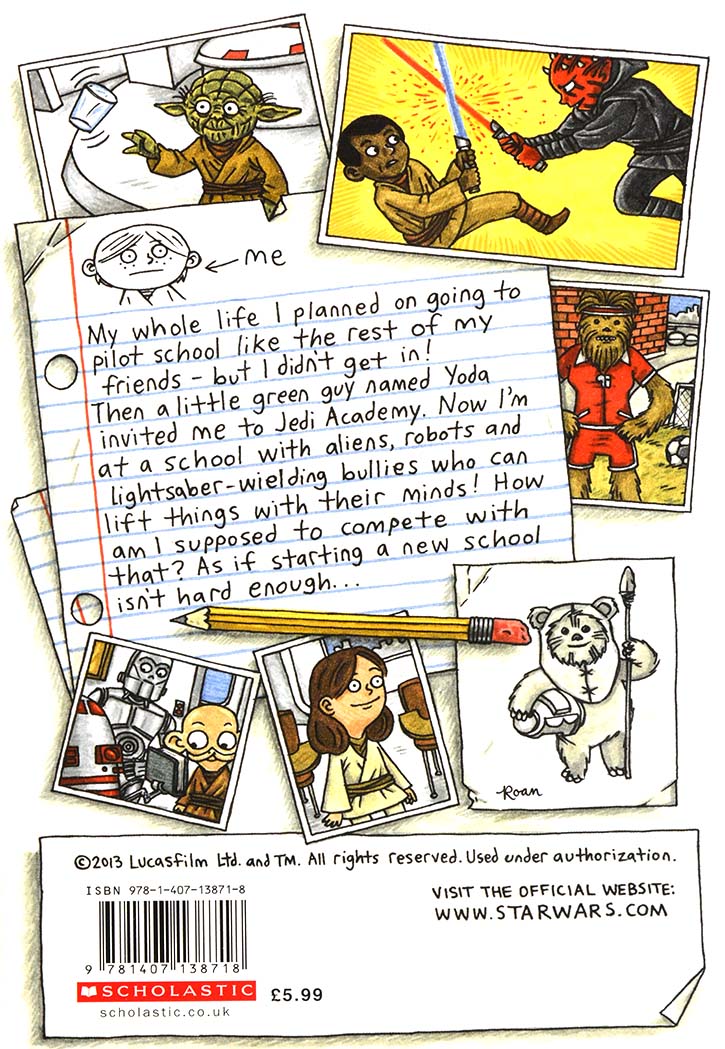 me
My whole life I planned on going to
pilot school like the rest of my
friends – but I didn't get in!
Then a little green guy named Yoda
invited me to Jedi Academy. Now I'm
at a school with aliens, robots and
lightsaber-wielding bullies who can
lift things with their minds! How
am I supposed to compete with
that? As if starting a new school
isn't hard enough...
Roan
©2013 Lucasfilm Ltd. and TM. All rights reserved. Used under authorization.
ISBN 978-1-407-13871-8
VISIT THE OFFICIAL WEBSITE:
WWW.STARWARS.COM
9 781407 138718
SCHOLASTIC £5.99
scholastic.co.uk